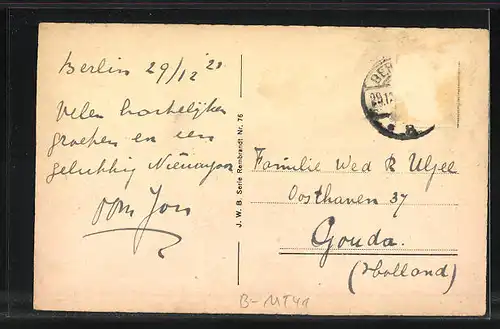 Berlin 29/12 21
Velen hartelijken
groeten en een
gelukkig Nieuwjaar
Oom Jon
J. W. B. Serie Rembrandt Nr. 76
BER
29.12
Familie Wed R Uljee
Oosthaven 37
Gouda.
(Holland)
B-MT49